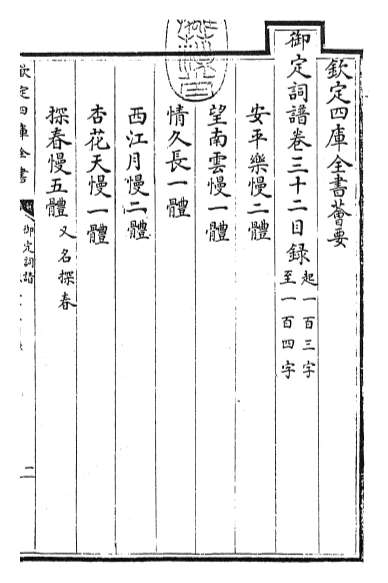 欽定四庫全書薈要
御定詞譜卷三十二目録 起一百三字至一百四字
安平樂慢二體
望南雲慢一體
情久長一體
西江月慢二體
杏花天慢一體
探春慢五體 又名探春
欽定四庫全書
御定詞譜